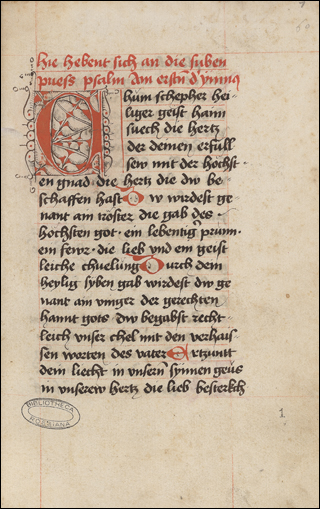 hie hebent sich an die siben
puess psalm Am ersten d' ymnus
Chum schepher hei-
liger geist hann
suech die hertz
der deinen erfüll
sew mit der hochst
en gnad · die hertz die dw be
schaffen hast Dw wirdest ge
nant am troster die gab des
hochsten got · ein lebentig' prunn ·
ein fewr · die lieb vnd ein geist
leiche chuelung Durch dem
heylig syben gab wirdest dw ge
nant am vinger der gerechten
hannt gots dw begabst recht
leich vnser chel mit den verhais
sen worten des vater Ertzuntt
dem liecht in vnsern synnen geus
in vnserew hertz die lieb besterkch
BIBLIOTHECA
ROSSIANA
1